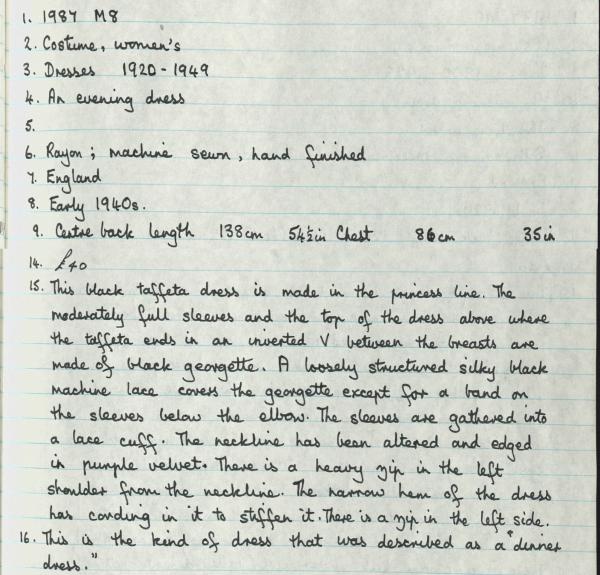 1. 1987 M8
2. Costume, women's
3. Dresses 1920-1949
4. An evening dress
5.
6. Rayon; machine sewn, hand finished
7. England
8. Early 1940s.
9. Centre back length 138cm 54½in Chest 86cm 35in
14. £40
15. This black taffeta dress is made in the princess line. The
moderately full sleeves and the top of the dress above where
the taffeta ends in an inverted V between the breasts are
made of black georgette. A loosely structured silky black
machine lace covers the georgette except for a band on
the sleeves below the elbow. The sleeves are gathered into
a lace cuff. The neckline has been altered and edged
in purple velvet. There is a heavy zip in the left
shoulder from the neckline. The narrow hem of the dress
has cording in it to stiffen it. There is a zip in the left side.
16. This is the kind of dress that was described as a "dinner
dress."